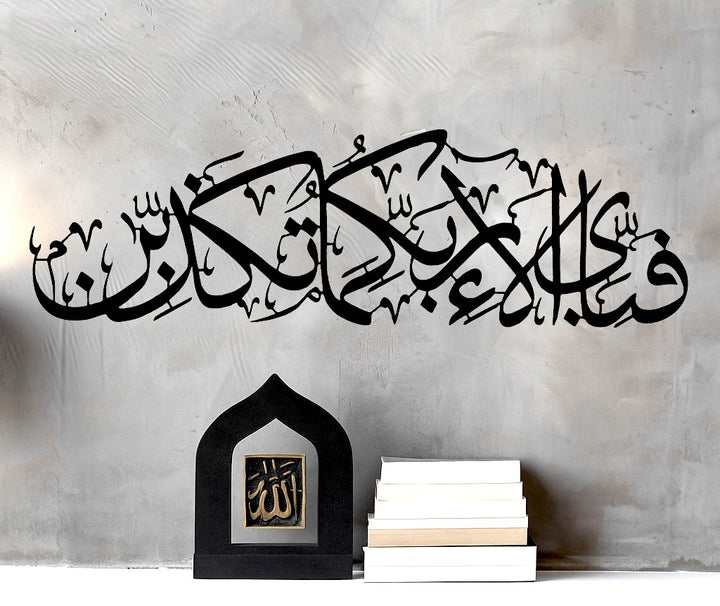 فبأي آلاء ربكما تكذبن
الله